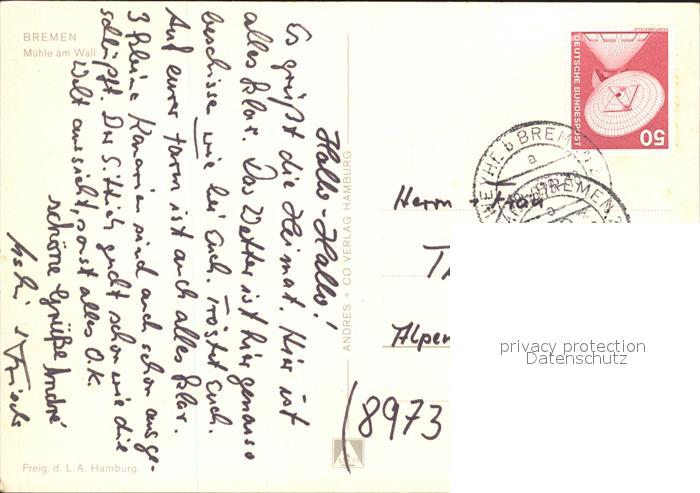 BREMEN
Mühle am Wall
Hallo-Hallo!
Es grüßt die Heimat. Hier ist
alles klar. Das Wetter ist hier genauso
beschissen wie bei Euch. Tröstet Euch.
Auf eurer Farm ist auch alles klar.
3 kleine Kanarien sind auch schon ausge-
schlüpft. Der Sittich guckt schon wie die
Welt aussieht, sonst alles O.K.
schöne Grüße André
ANDRES + CO VERLAG HAMBURG
Freig. d. L. A. Hamburg
ERDEFUNKSTELLE
DEUTSCHE BUNDESPOST
50
WEYHE b BREMEN 2
a
BREMEN 2
a
Herrn + Frau
Alpen
(8973
privacy protection
Datenschutz